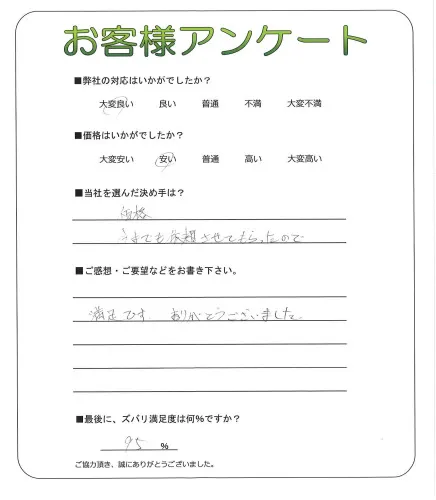 お客様アンケート
■弊社の対応はいかがでしたか?
大変良い 良い 普通 不満 大変不満
■価格はいかがでしたか?
大変安い 安い 普通 高い 大変高い
■当社を選んだ決め手は?
価格
今までも依頼させてもらったので
■ご感想・ご要望などをお書き下さい。
満足です。ありがとうございました。
■最後に、ズバリ満足度は何%ですか?
95 %
ご協力頂き、誠にありがとうございました。